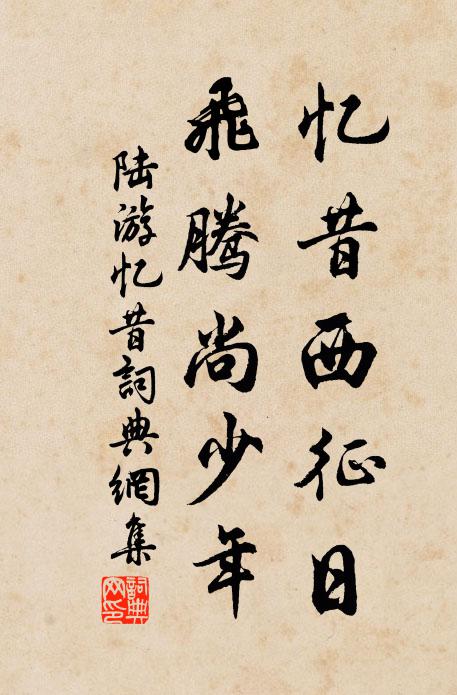 忆昔西征日
飛騰尚少年
陆游忆昔詞典網集
詞典网印